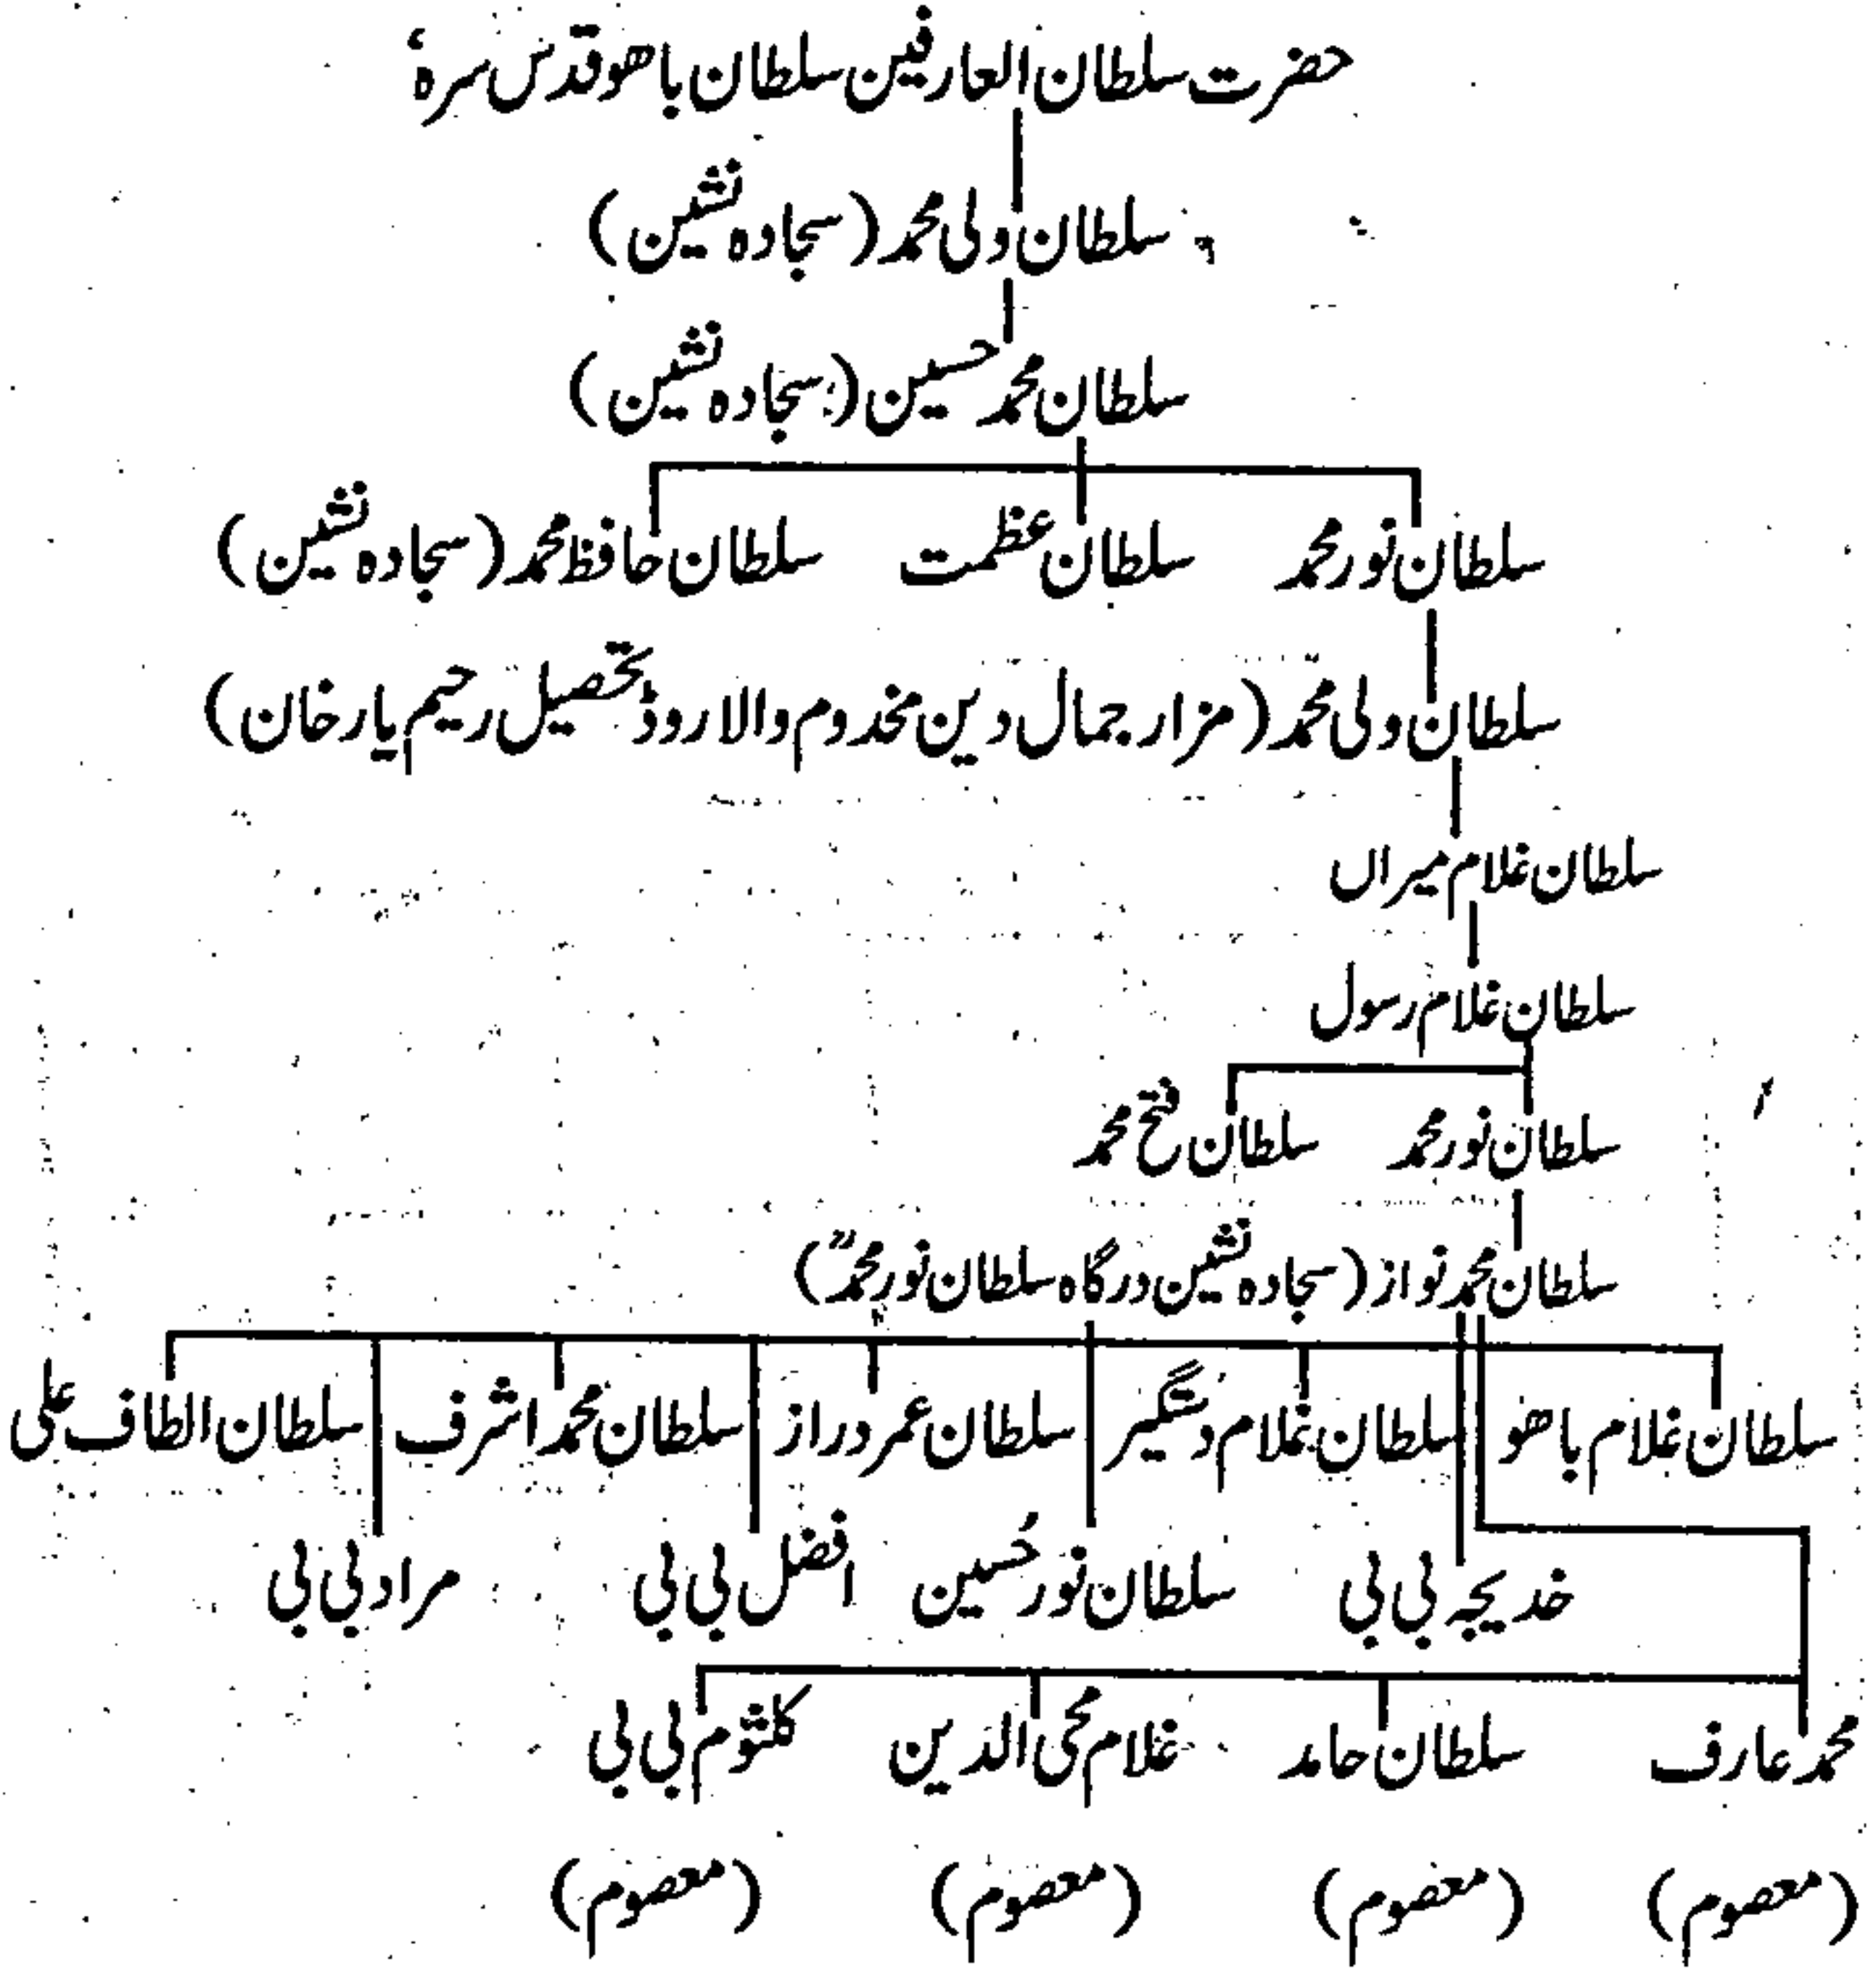 حضرت سلطان العارفین سلطان باھو قدس سرہ‘
سلطان ولی محمد (سجادہ نشین)
سلطان محمد حسین (سجادہ نشین)
سلطان نور محمد سلطان عظمت سلطان حافظ محمد (سجادہ نشین)
سلطان ولی محمد (مزار جمال دین مخدوم والا روڈ تحصیل رحیم یار خان)
سلطان غلام میراں
سلطان غلام رسول
سلطان نور محمد سلطان فتح محمد
سلطان محمد نواز (سجادہ نشین درگاہ سلطان نور محمدؒ)
سلطان غلام باھو سلطان غلام دستگیر سلطان عمر دراز سلطان محمد اشرف سلطان الطاف علی
خدیجہ بی بی سلطان نور حُسین افضل بی بی مراد بی بی
محمد عارف سلطان حامد غلام محی الدین کلثوم بی بی
(معصوم) (معصوم) (معصوم) (معصوم)